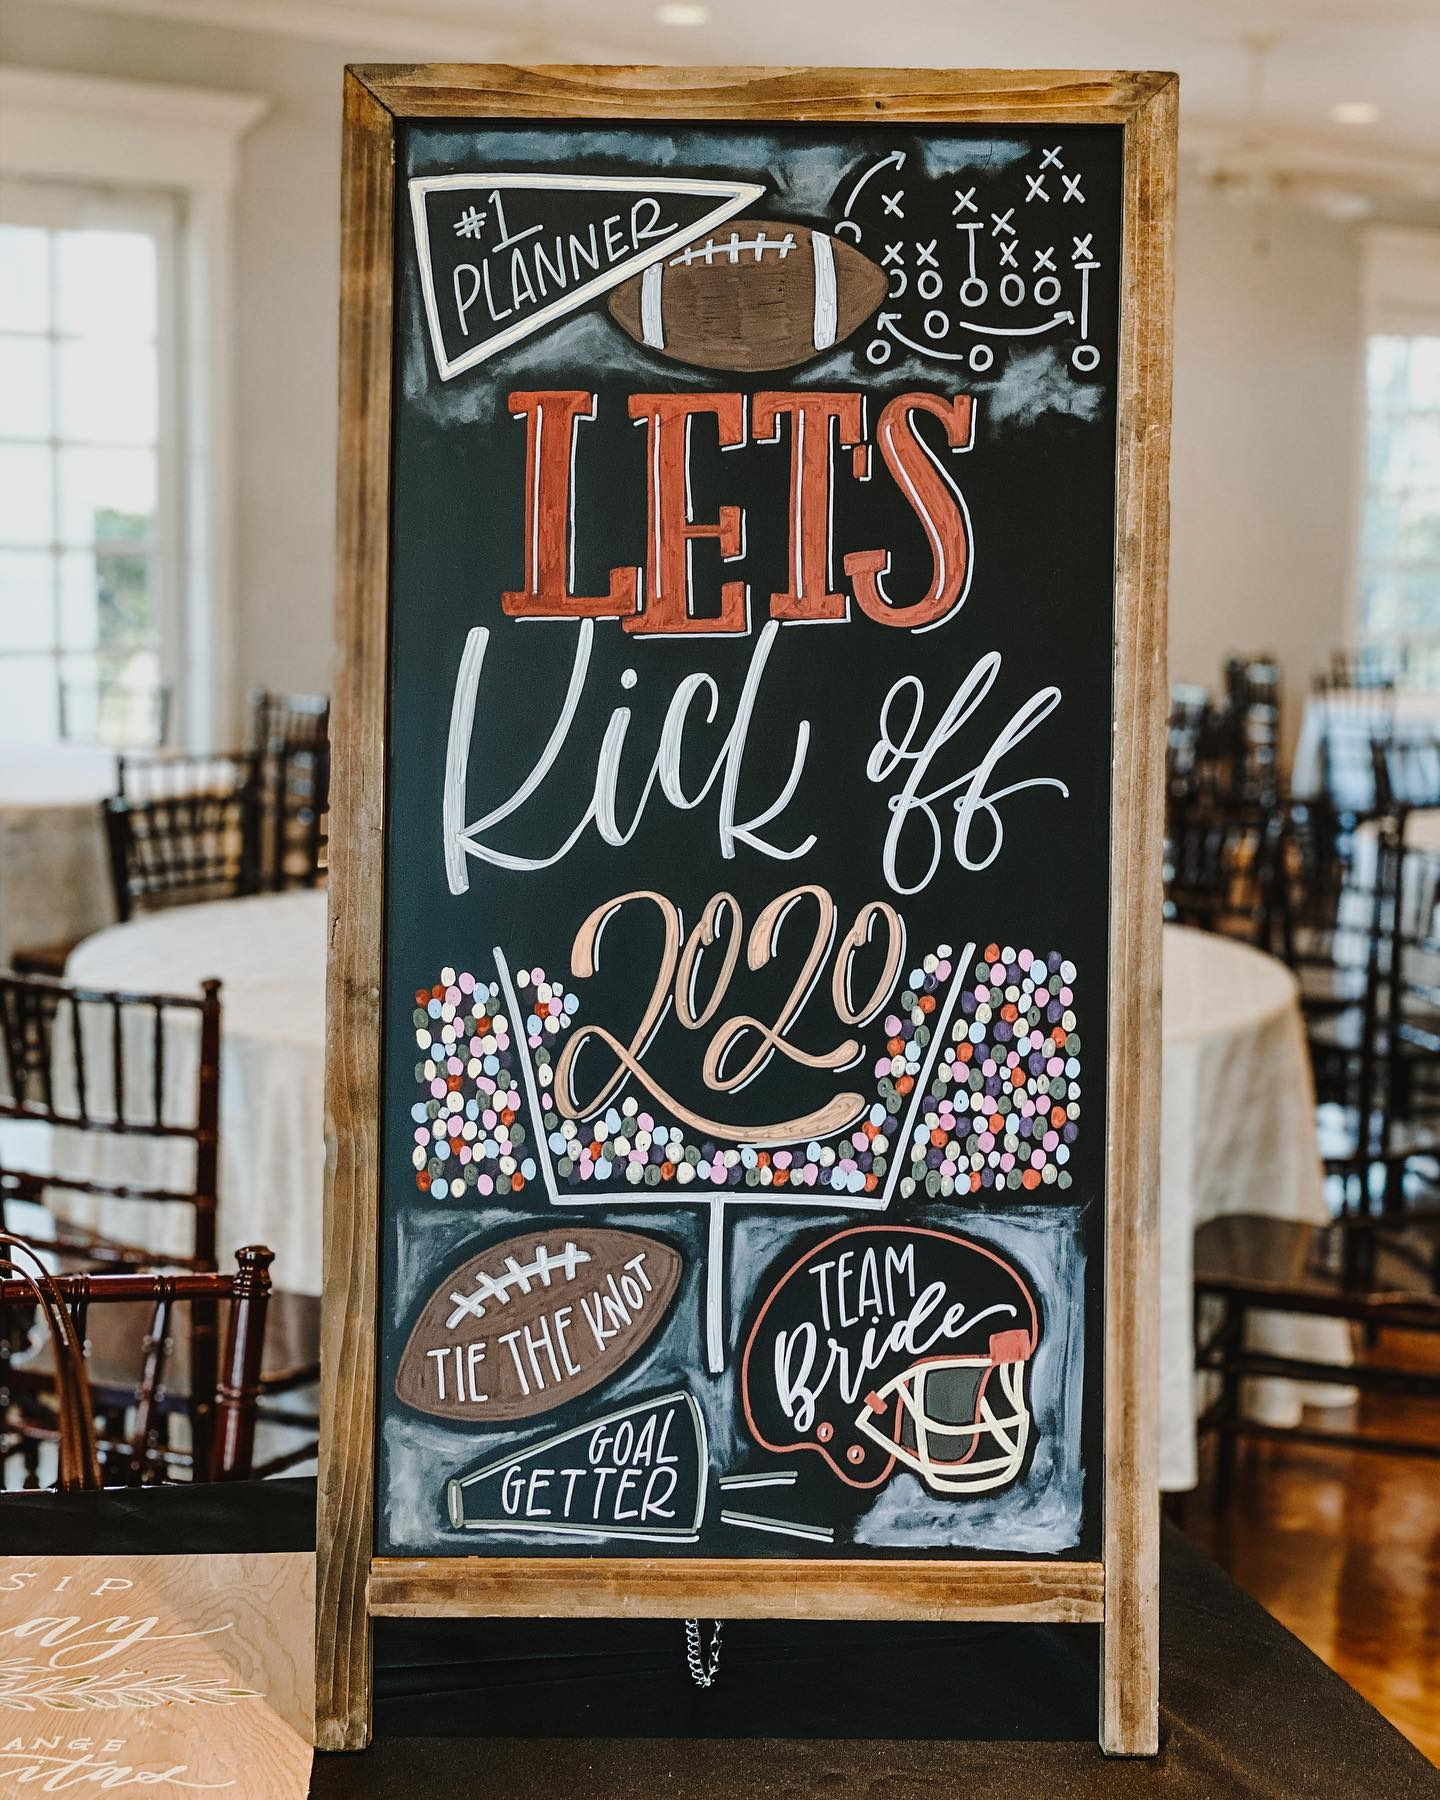 #1
PLANNER
LETS
Kick off
2020
TIE THE KNOT
TEAM
Bride
GOAL
GETTER
SIP